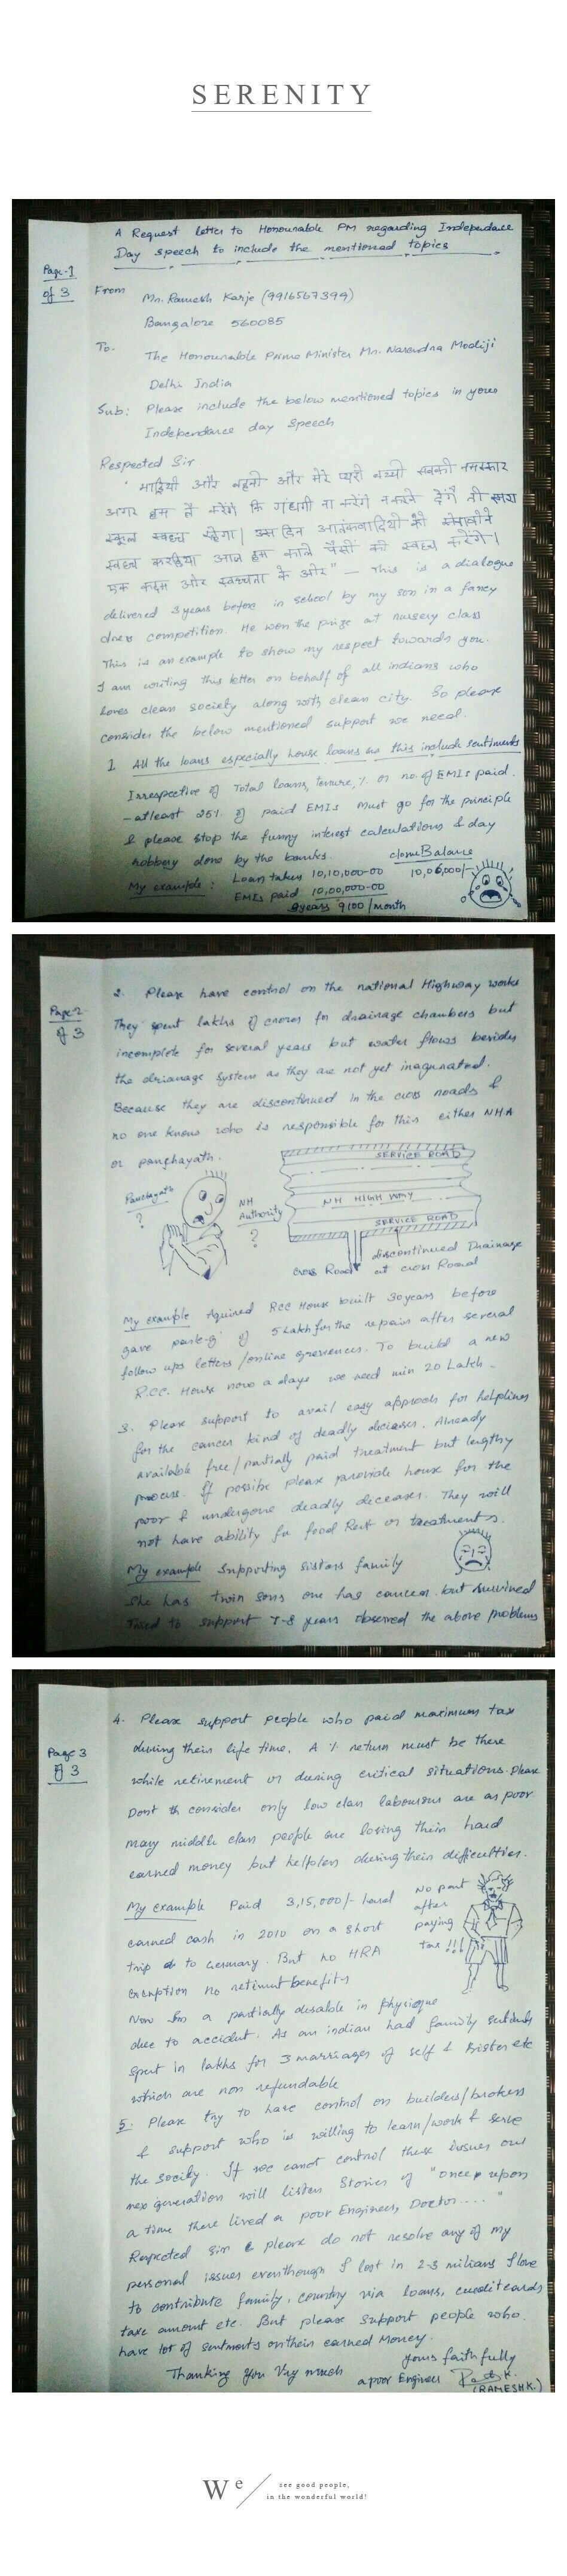 SERENITY
A Request letter to Honourable PM regarding Independance
Day speech to include the mentioned topics
Page-1
of 3
From
Mr. Ramesh Karje (9916567399)
Bangalore 560085
To-
The Honourable Prime Minister Mr. Narendra Modiji
Delhi India
Sub: Please include the below mentioned topics in your
Independance day speech
Respected Sir.
" भाईयो और बहनो और मेरे प्यारे बच्चो सबको नमस्कार
अगर हम तै करेंगे कि गंधगी ना करेंगे न करने देंगे तो हमारा
स्कूल स्वच्छ रहेगा। उस दिन आतंकवादियो को
स्वच्छ करदिया आज हम काले पैसों को स्वच्छ करेंगे।
एक कदम और स्वच्छता के ओर" - This is a dialogue
delivered 3 years before in school by my son in a fancy
dress competition. He won the prize at nursery class
This is an example to show my respect towards you.
I am writing this letter on behalf of all indians who
loves clean society along with clean city. So please
consider the below mentioned support we need.
1. All the loans especially house loans as this include sentiments
Irrespective of Total loans, tenure, % or no. of EMIs paid.
- atleast 25% of paid EMIs must go for the principle
& please stop the funny interest calculations & day
robbery done by the banks.
closure Balance
My example: Loan taken 10,10,000-00 10,06,000/-
EMIs paid 10,00,000-00
9years 9100/month
2. Please have control on the national Highway works
Page 2
of 3
They spent lakhs of crores for drainage chambers but
incomplete for several years but water flows besides
the drianage system as they are not yet inagurated.
Because they are discontinued in the cross roads &
no one knows who is responsible for this either NHA
or panchayath.
Panchayath
?
NH
Authority
?
SERVICE ROAD
NH HIGH WAY
SERVICE ROAD
Cross Road
discontinued Drainage
at cross Road
My example Aquired RCC House built 30years before
gave of 5 Lakh for the repairs after several
follow ups letters/online greviences. To build a new
R.C.C. House now a days we need min 20 Lakh -
3. Please support to avail easy approach for helplines
for the cancer kind of deadly diceases. Already
available free/partially paid treatment but lengthy
process. If possible please provide house for the
poor & undergone deadly deceases. They will
not have ability for food Rent or treatments.
My example Supporting sisters family
She has twin sons one has cancer but survived
Tried to support 7-8 years observed the above problems
4. Please support people who paid maximum tax
Page 3
of 3
during their life time. A % return must be there
while retirement or during critical situations. Please
Dont consider only low class labourous are as poor
many middle class people are losing their hard
earned money but helpless during their difficulties.
My example Paid 3,15,000/- hard
earned cash in 2010 on a short
trip to Germany. But no HRA
exemption no benefits
No pant
after
paying
tax !!!
Now Im a partially disable in physique
due to accident. As an indian had family
spent in lakhs for 3 marriages of self & sister etc
which are non refundable
5. Please try to have control on builders/brokers
& support who is willing to learn/work & serve
the society. If we canot control these issues our
nex generation will listen stories of "once upon
a time there lived a poor Engineer, Doctor.... "
Respected Sir please do not resolve any of my
personal issues eventhough I lost in 2-3 milians I love
to contribute family, country via loans, creditcards
taxe amount etc. But please support people who
have lot of sentments on their earned money.
Thanking you Very much
yours faithfully
a poor Engineer
(RAMESH K.)
We see good people,
in the wonderful world!